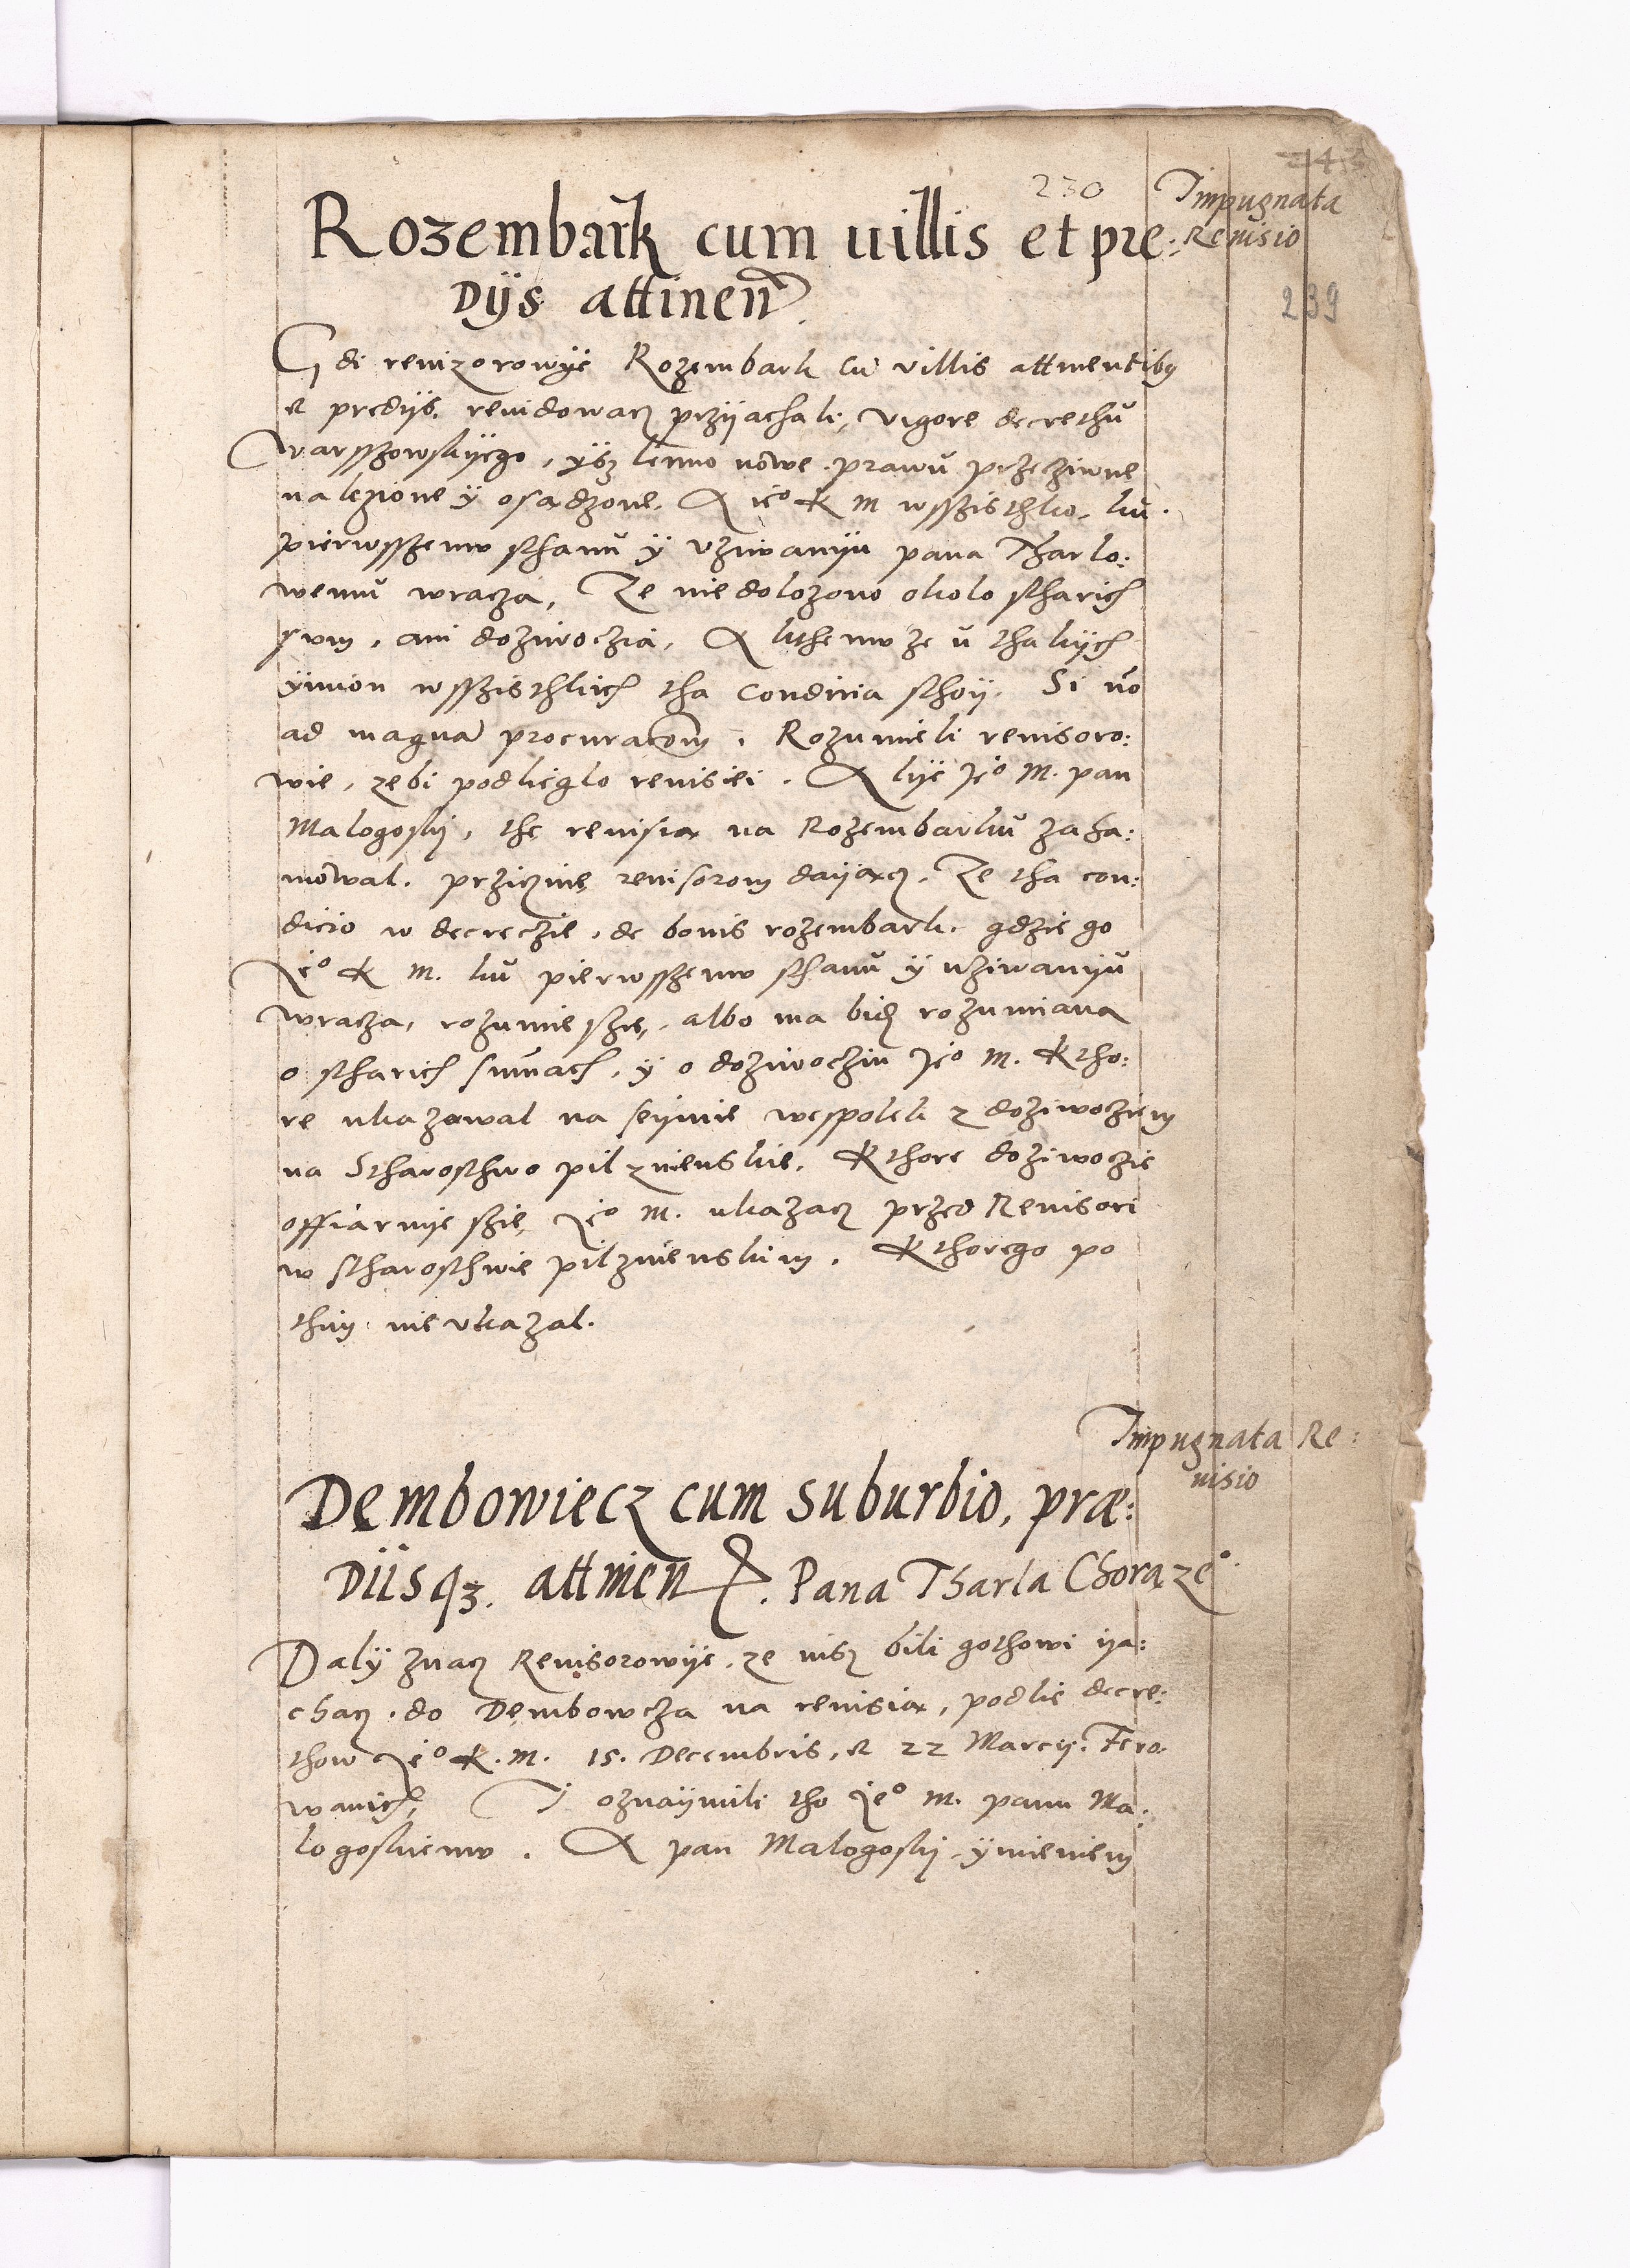 230
Impugnata
Revisio
239
Rozembark cum uillis et pre:
Dijs attinen.
Gdi revizorowÿe Rozembark cu villis attinentibq
et predijs. revidowacz prziiachali, vigore decrethu
Warsszowskÿego, ÿsz lenno nowe. prawu przecziwne
nalezione ÿ osadzone. A ieº K M wsszisthko, ku.
pierwsszemw sthanu ÿ vziwaniju pana Tharlo:
wemu wracza, Ze niedolozono okolo stharich
svm, ani doziwoczia, A kthemw ze u thakÿch
ÿmion wsszisthkich tha condicia sthoij. Si vo
ad magna procuracom. Rozumieli revisoro:
wie, zebi podlieglo revisiei. A liÿe Jeº M. pan
Malogoskj, the revisia na Rozembarku zaha:
mowal. przicznie revisorom daijacz. Ze tha con:
dicio w decreczie, de bonis rozembark. gdzie go
Jeº K M. ku pierwsszemw sthanu ÿ uziwanijv
wracza, rozumie szie, albo ma bicz rozumiana
o stharich sumach, ÿ o doziwocziu Jeº M. Ktho:
re ukazowal na seijmie wespolek z doziwocziem
na Stharosthwo pilznienskie. Kthore doziwoczie
offiarvije szie, Jeº M. ukazacz przed Revisori
w stharosthwie pilznienskim. Kthorego po
thim nie vkazal.
Impugnata Re:
visio
Dembowiecz cum suburbio, præ:
Diisqz. attinen. Pana Tharla Chorązeº.
Dalÿ znacz Revisorowije, ze uisz bili gothowi iia:
chacz. do Dembowcza na revisia, podlie decre:
thow Jeº K. M. 15. Decembris, et 22 Marcij. Fero
wanich, I oznaijmili tho Jeº M. panu Ma:
logoskiemw. A pan Malogoskj ÿmieniem